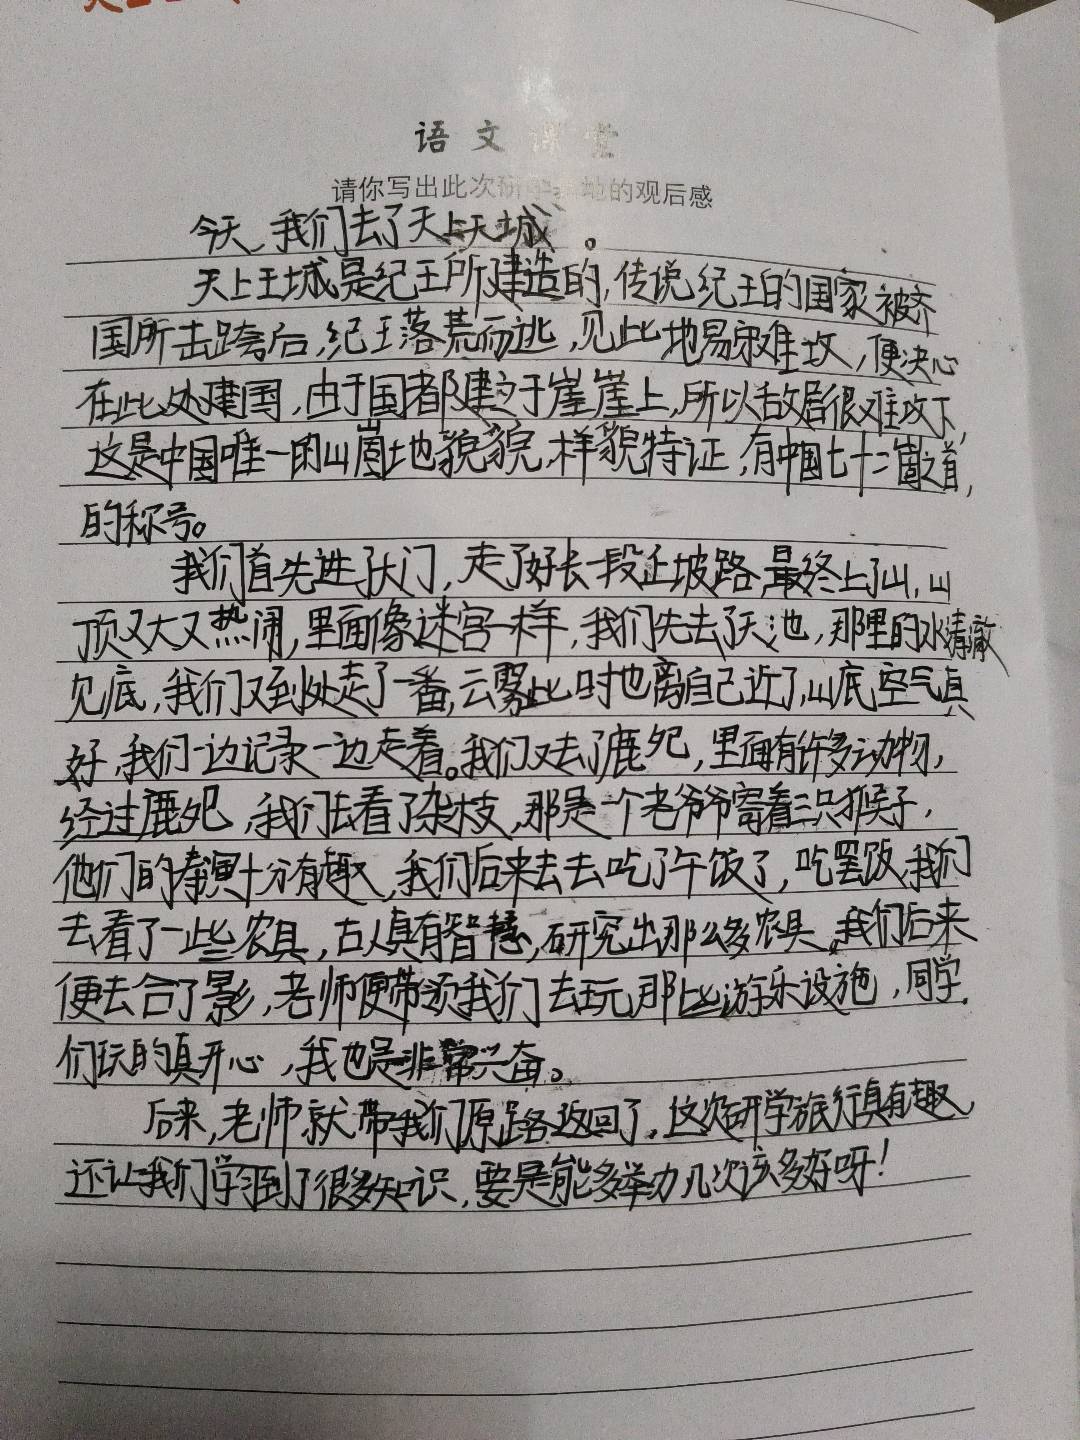 语文课堂
请你写出此次研 地的观后感
今天,我们去了天上天城。
天上王城是纪王所建造的,传说纪王的国家被齐
国所击跨后,纪王落荒而逃,见此地易守难攻,便决心
在此处建国,由于国都建之于崖崖上,所以敌后很难攻下,
这是中国唯一的山崮地貌貌,样貌特证,有中国七十二崮之首,
的称号。
我们首先进了大门,走了好长一段上坡路,最终上了山,山
顶又大又热闹,里面像迷宫一样,我们先去了天池,那里的水清澈
见底,我们又到处走了一番,云雾此时也离自己近了,山底空气真
好,我们一边记录一边走着。我们又去了鹿死,里面有许多动物,
经过鹿死,我们去看了杂枝,那是一个老爷爷寄着三只猴子,
他们的表演十分有趣,我们后来去去吃了午饭了,吃罢饭,我们
去看了一些农具,古人真有智慧,研究出那么多农具。我们后来
便去合了影,老师便带领我们去玩那些游乐设施,同学
们玩的真开心,我也是非常兴奋。
后来,老师就带我们原路返回了。这次研学旅行真有趣,
还让我们学习到了很多知识,要是能多举办几次该多好呀!